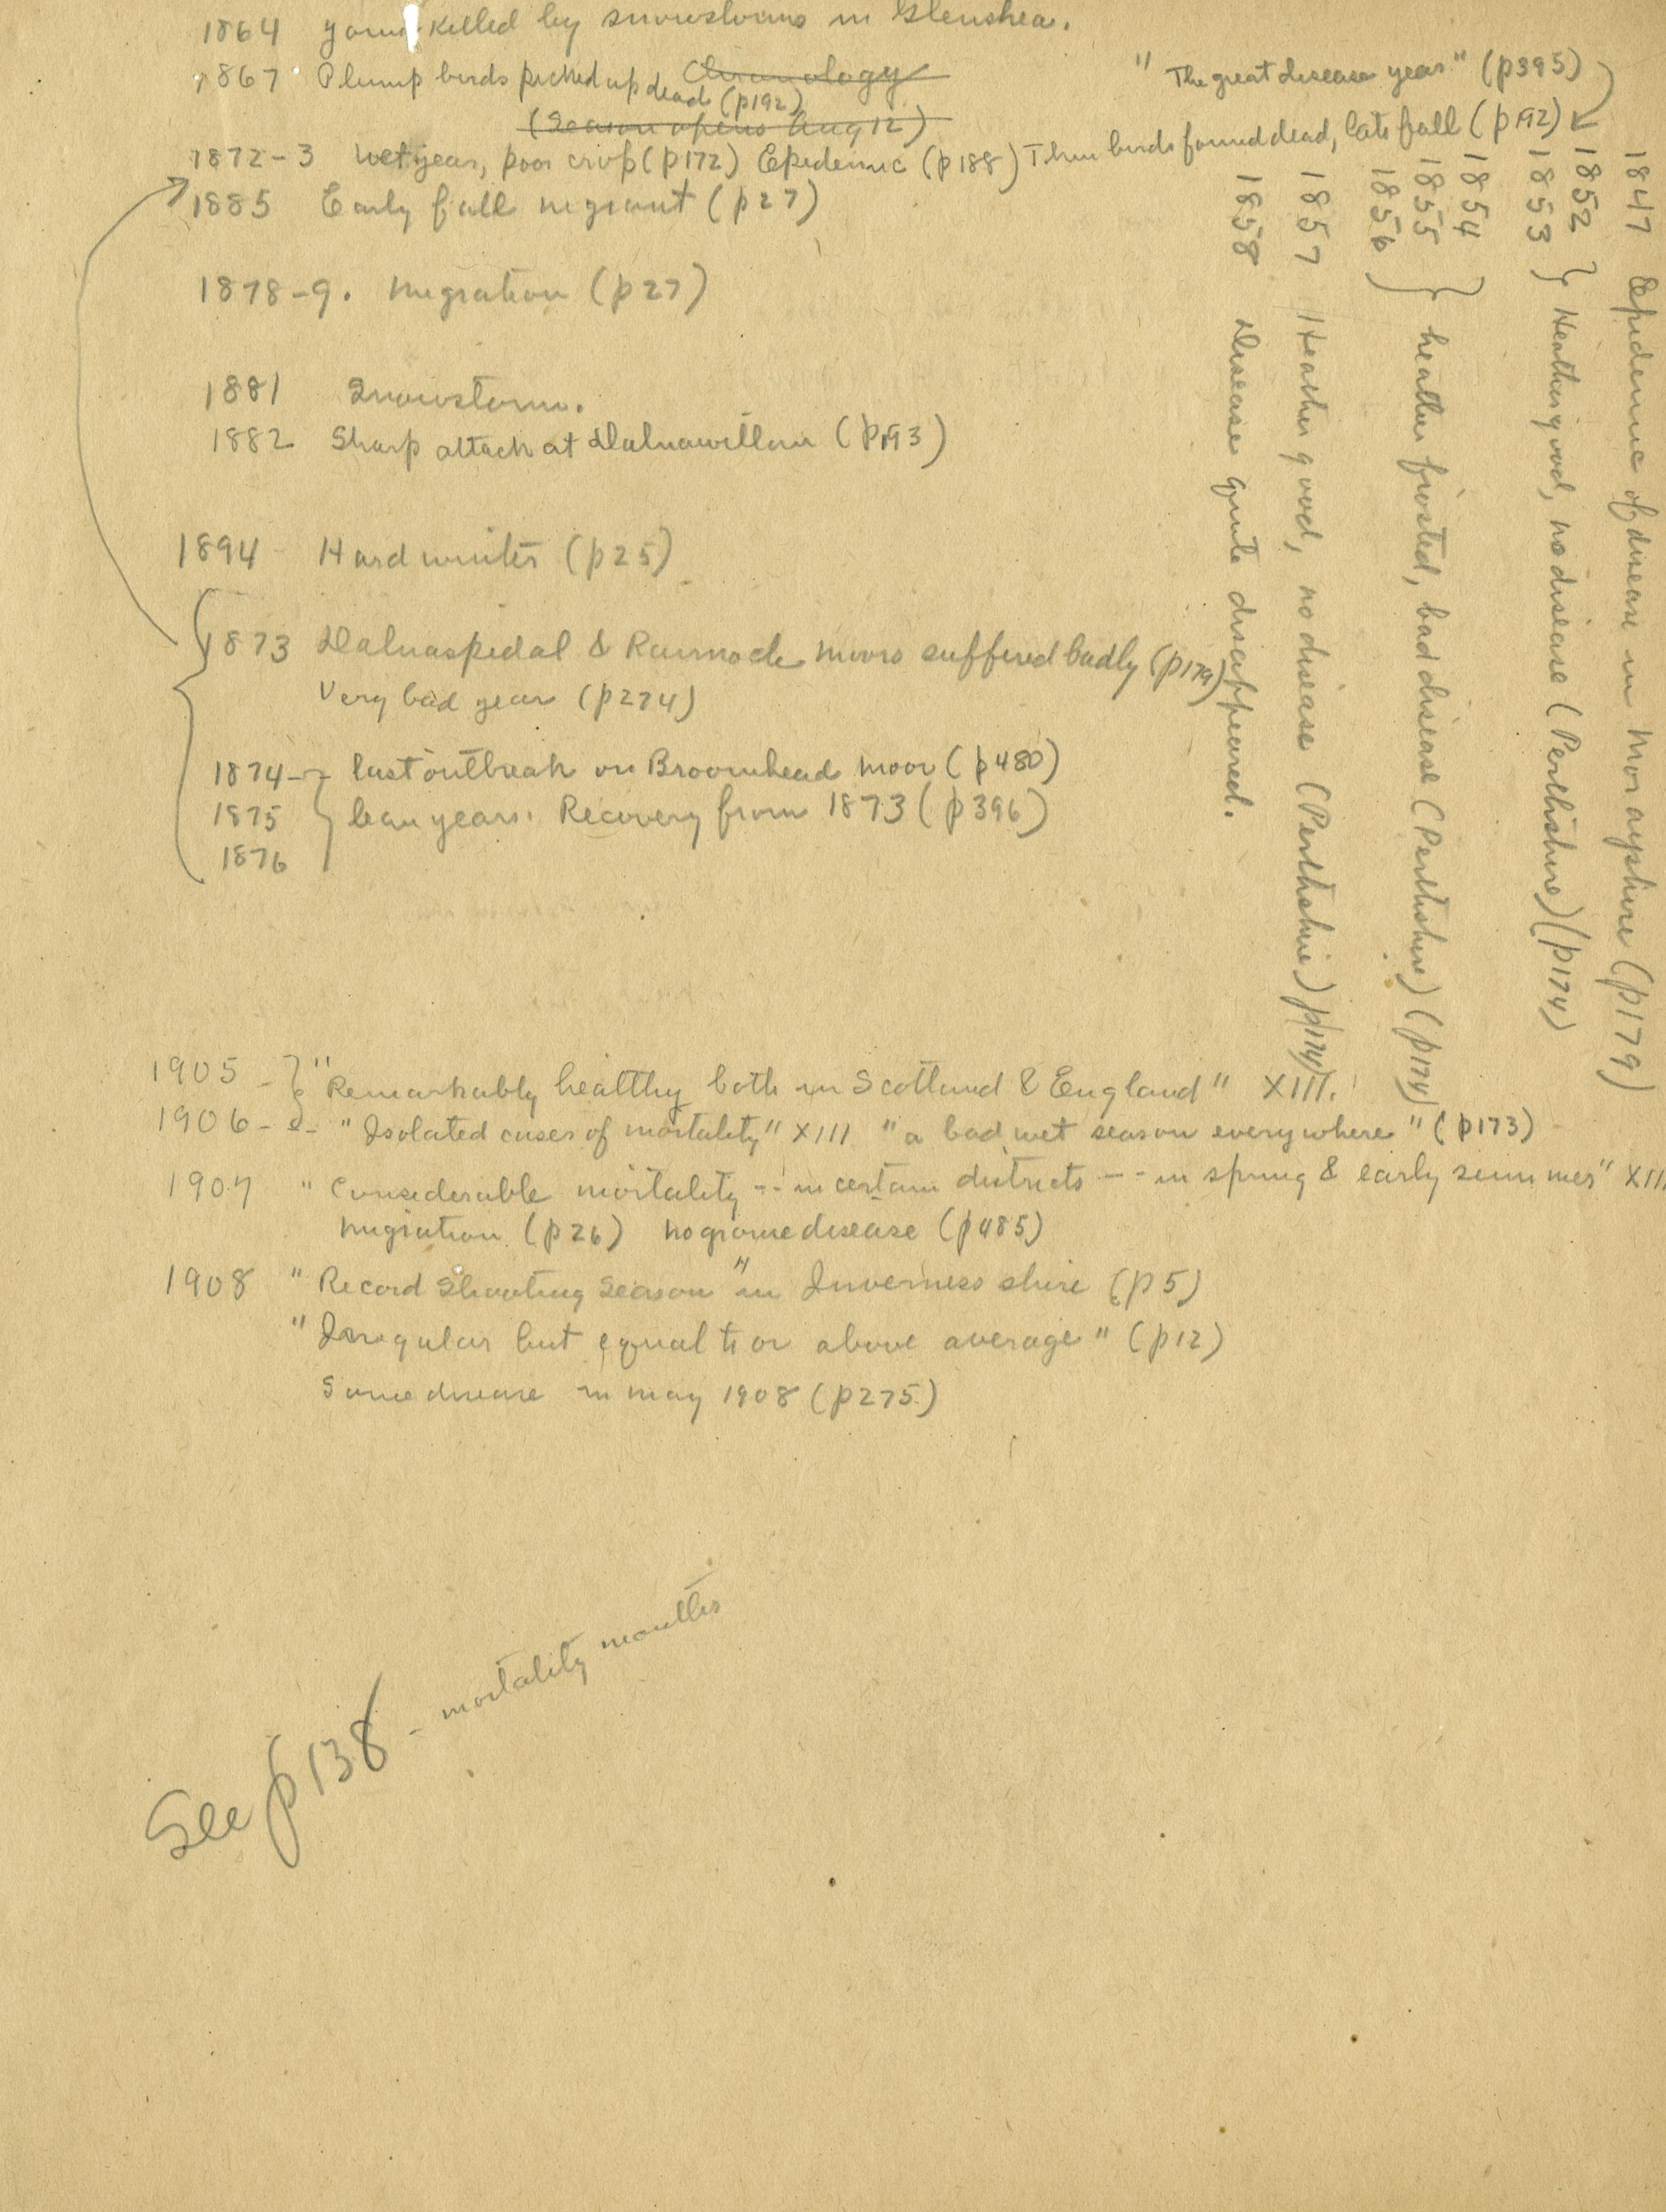 1864 young killed by snowstorms in Glenshea.
"The great disease year" (p395)
1867 Plump birds picked up dead (p192)
Chronology
(Season opens Aug 12)
1872-3 Wet year, poor crop (p172) Epidemic (p188) Thin birds found dead, late fall (p192)
1885 Early fall migrant (p27)
1878-9. Migration (p27)
1881 Snowstorm.
1882 Sharp attack at Dalnawillan (p193)
1894 Hard winter (p25)
1873 Dalnaspidal & Rannoch moors suffered badly (p179)
Very bad year (p274)
1874- last outbreak on Broomhead moor (p480)
1875 } lean years. Recovery from 1873 (p396)
1876
1905 - } "Remarkably healthy both in Scotland & England" XIII.
1906 - "Isolated cases of mortality" XIII "a bad wet season everywhere" (p173)
1907 "Considerable mortality -- in certain districts -- in spring & early summer" XIII
migration (p26) no grouse disease (p485)
1908 "Record Shooting Season" in Inverness shire (p5)
"Irregular but equal to or above average" (p12)
Some disease in May 1908 (p275)
See p138 - mortality months
1847 Epidemic of disease in Morayshire (p179)
1852
1853 } Heather good, no disease (Perthshire) (p174)
1854
1855 } heather frosted, bad disease (Perthshire) (p174)
1856
1857 Heather good, no disease (Perthshire) p174)
1858 Disease quite disappeared.